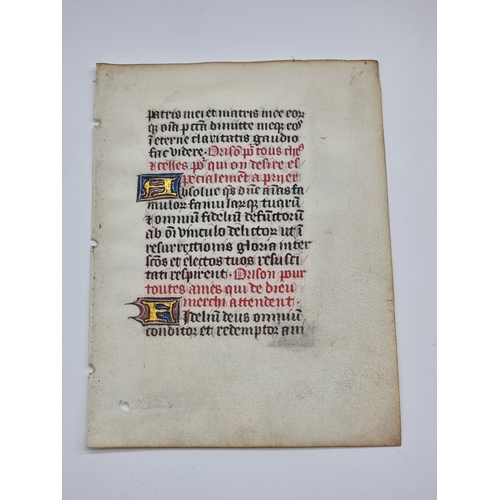 patris mei et matris mee eor
q̨ oīa pctā dimitte meq̨ eos
ī eterne claritatis gaudio
fac videre. Orisō pō tous ceꝰ
& celles pō qui on desire es
pecialemēt a prier
Absolue qs dn̄e aīas fa
mulor̨ famularq̨ tuarū
& omniū fideliū defūctorū
ab oī vinculo delictor̨ ut ī
resurrectionis gloria inter
scōs et electos tuos resusci
tati respirent. Orison pour
toutes ames qui de dieu
merchi attendent.
Fideliū deus omniū
conditor et redemptor aīī